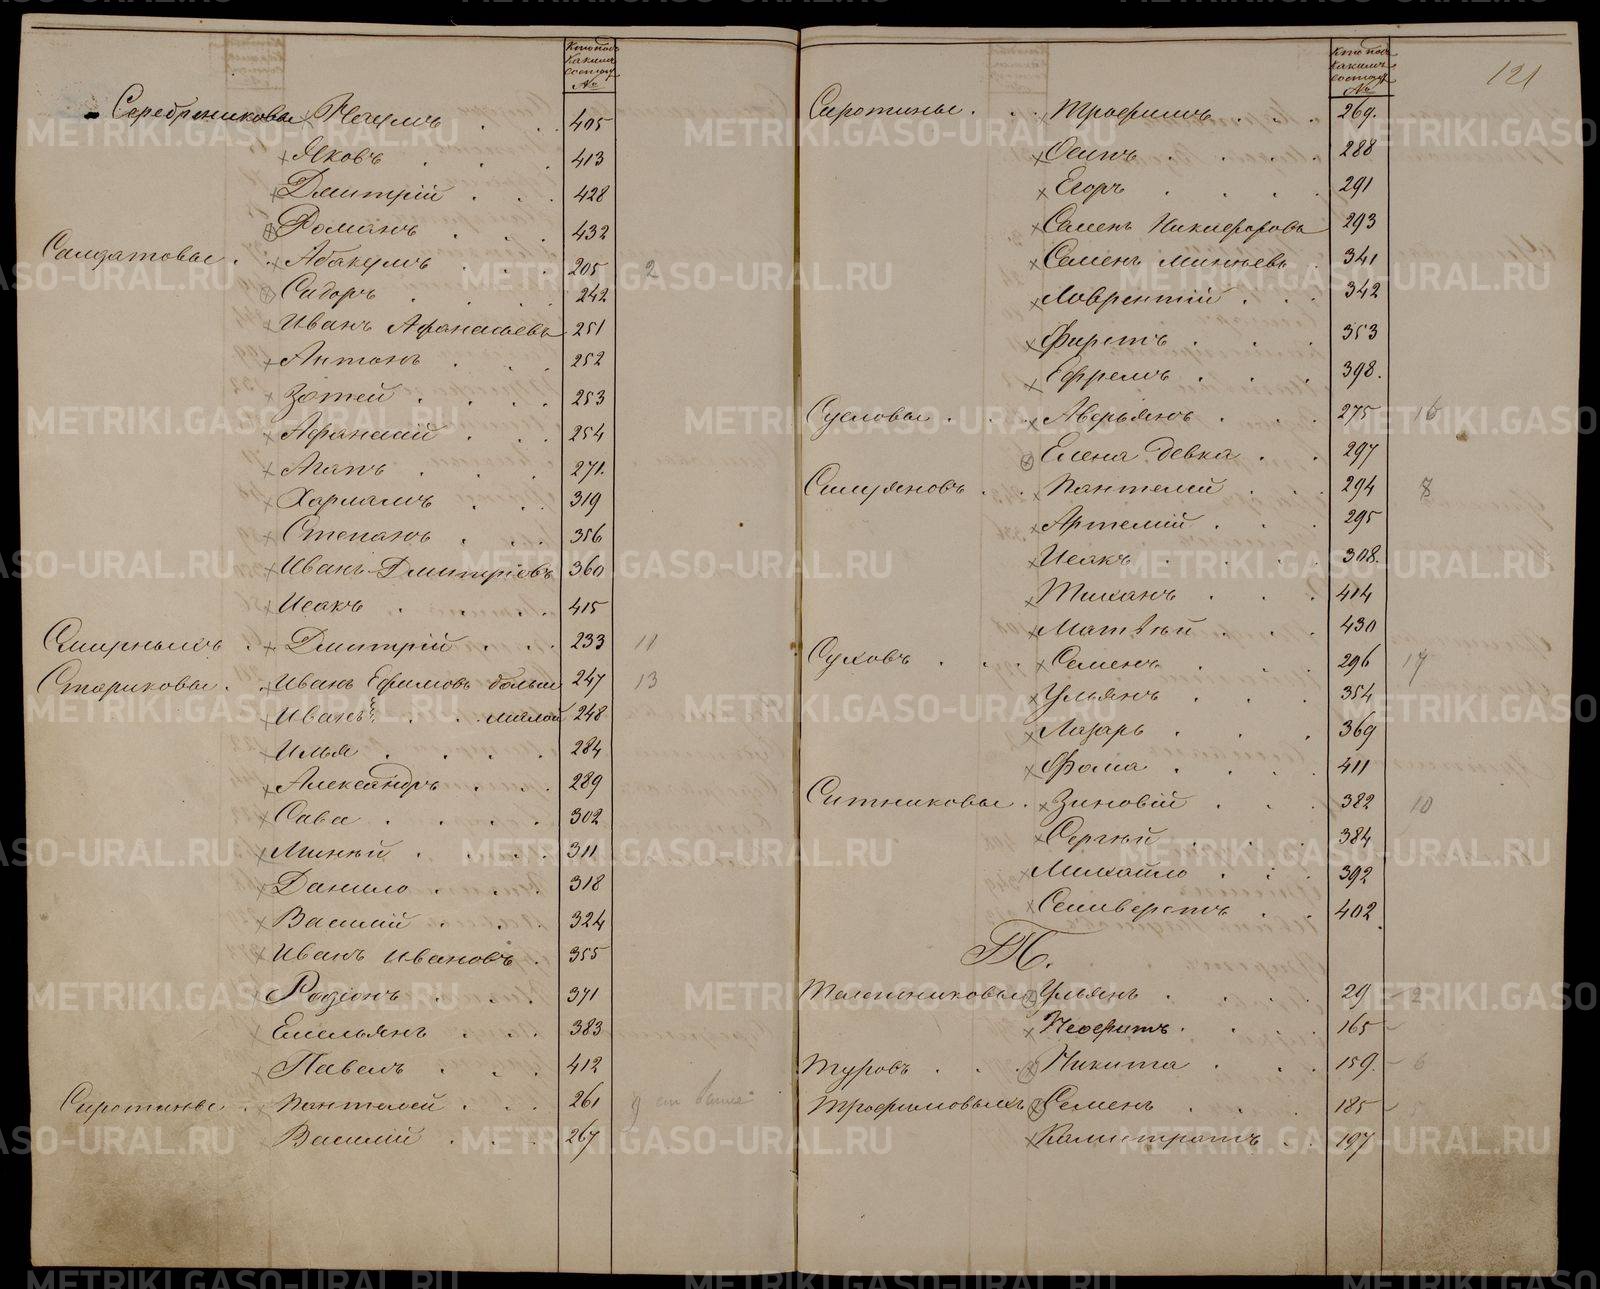 Кто подъ
какимъ
состоитъ
№
Серебрениковы Наумъ 405
Яковъ 413
Дмитрій 428
Романъ 432
Салдатовы Абакумъ 205 2
Сидоръ 242
Иванъ Афанасьевъ 251
Антонъ 252
Зотей 253
Афанасій 254
Агапъ 271.
Харламъ 319
Степанъ 356
Иванъ Дмитріевъ 360
Исакъ 415
Смирныхъ Дмитрій 233 11
Стариковы Иванъ Ефимовъ больш 247 13
Иванъ малой 248
Илья 284
Александръ 289
Сава 302
Миней 311
Данило 318
Василій 324
Иванъ Ивановъ 355
Родіонъ 371
Емельянъ 383
Павелъ 412
Сиротины Пантелей 261 9
Василій 267
121
Кто под
какимъ
состоит
№
Сиротины Трофимъ 269.
Осипъ 288
Егоръ 291
Семенъ Никифоровъ 293
Семенъ Минѣевъ 341
Лаврентій 342
Фирстъ 353
Ефремъ 398.
Сусловы Аверьянъ 275 16
Елена девка 297
Смуряновъ Пантелей 294 8
Артемій 295
Исакъ 308.
Тиханъ 414
Матвѣй 430
Суховъ Семенъ 296 17
Ульянъ 354
Лазарь 369
Фома 411
Ситниковы Зиновій 382 10
Сергѣй 384
Михайло 392
Селиверстъ 402.
Т.
Ульянъ 29 2
Неофитъ 165
Туровъ Никита 159. 6
Трофимовыхъ Семенъ 185 5
Калистратъ 197
METRIKI.GASO-URAL.RU